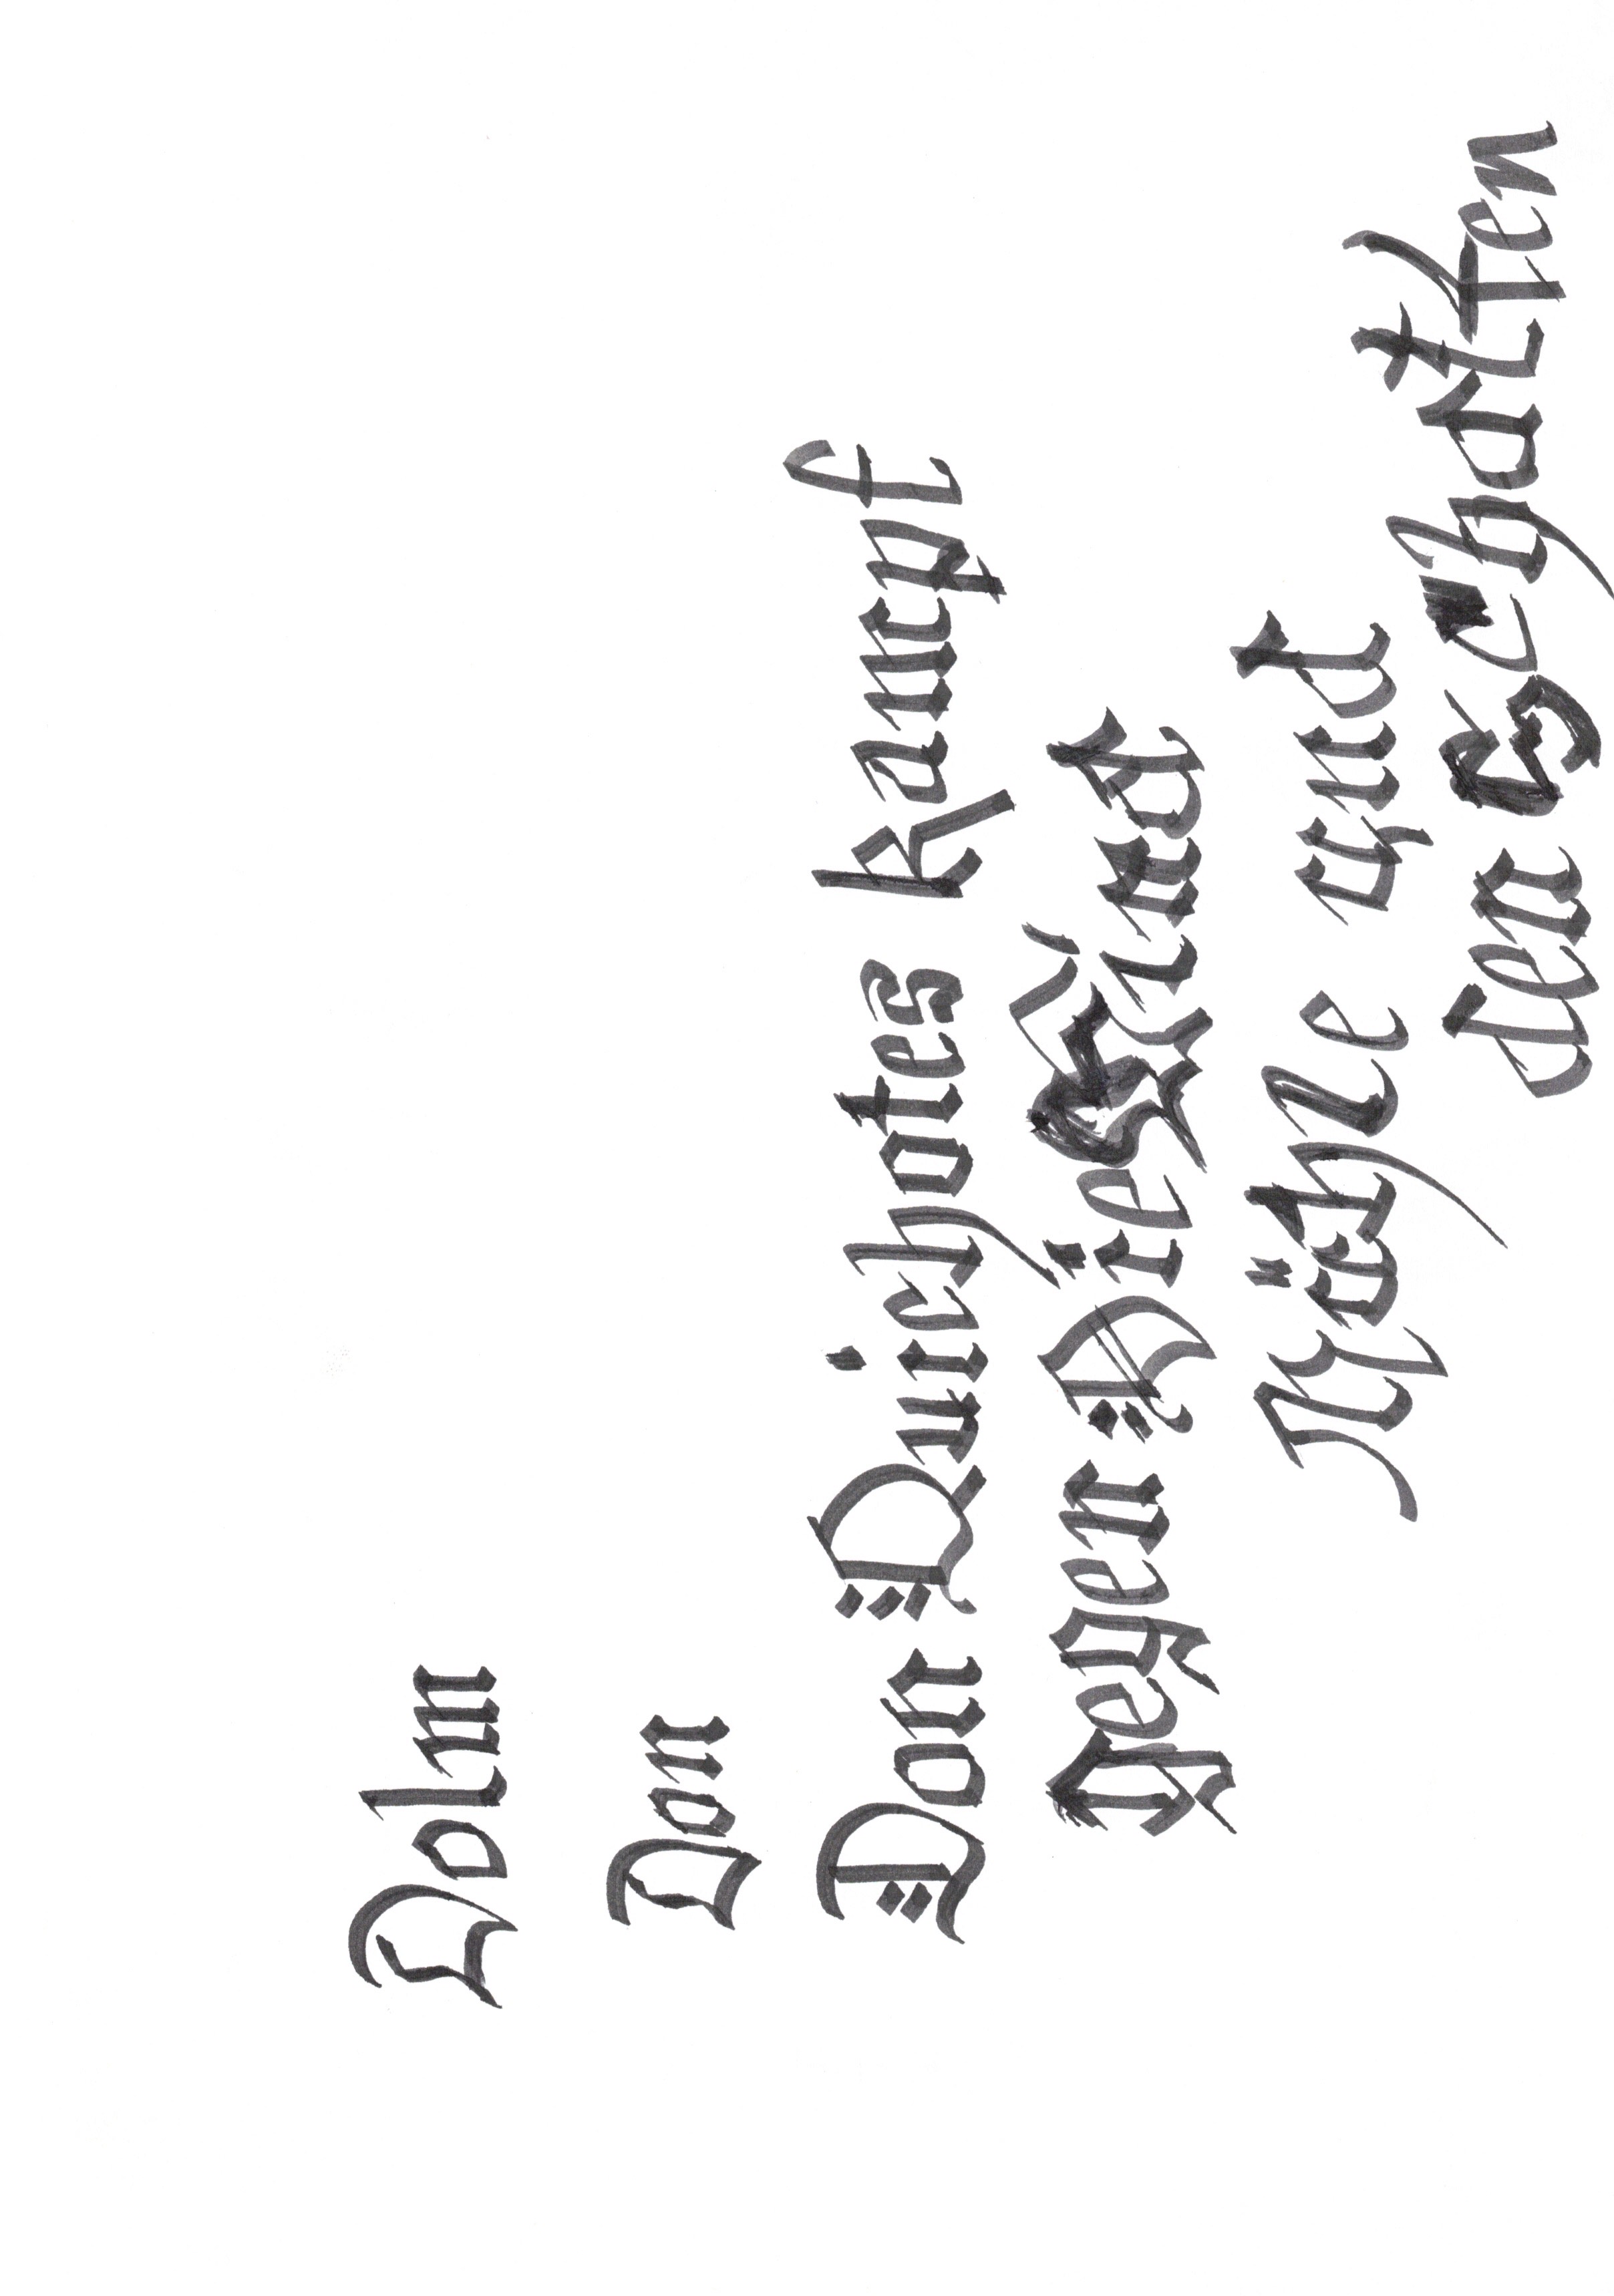 Dolm
Don
Don Quichotes Kampf
gegen Die Wind
Mühle und
den Schatten